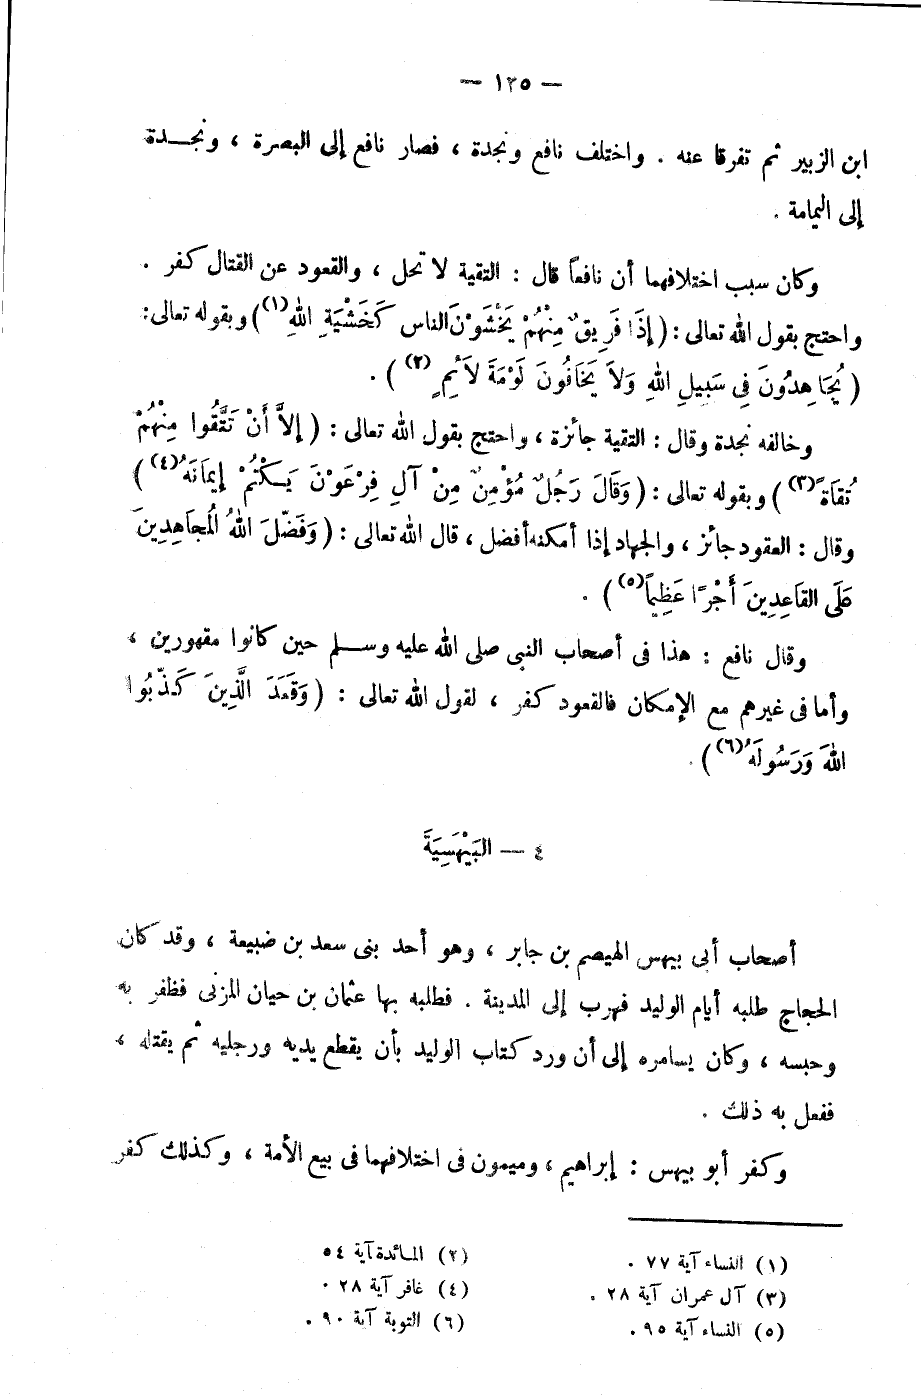 — ١٢٥ —
ابن الزبير ثم تفرقا عنه . واختلف نافع ونجدة ، فصار نافع إلى البصرة ، ونجـــدة
إلى اليمامة .
وكان سبب اختلافهما أن نافعاً قال : التقية لا تحل ، والقعود عن القتال كفر .
واحتج بقول الله تعالى : ( إِذَا فَرِيقٌ مِنْهُمْ يَخْشَوْنَ الناس كَخَشْيَةِ اللهِ(١) ) وبقوله تعالى:
( يُجَاهِدُونَ فِى سَبِيلِ اللهِ وَلاَ يَخَافُونَ لَوْمَةَ لاَئِمٍ (٢) ) .
وخالفه نجدة وقال : التقية جائزة ، واحتج بقول الله تعالى : ( إِلاَّ أَنْ تَتَّقُوا مِنْهُمْ
تُقَاةً(٣) ) وبقوله تعالى : ( وَقَالَ رَجُلٌ مُؤْمِنٌ مِنْ آلِ فِرْعَوْنَ يَكْتُمُ إِيمَانَهُ(٤) )
وقال : العقود جائز ، والجهاد إذا أمكنه أفضل ، قال الله تعالى : ( وَفَضَّلَ اللهُ الْمُجَاهِدِينَ
عَلَى القَاعِدِينَ أَجْرًا عَظِيماً(٥) ) .
وقال نافع : هذا فى أصحاب النبى صلى الله عليه وســلم حين كانوا مقهورين ،
وأما فى غيرهم مع الإمكان فالقعود كفر ، لقول الله تعالى : ( وَقَعَدَ الَّذِينَ كَذَبُوا
اللهَ وَرَسُولَهُ(٦) ) .
٤ — البَيْهَسِيَةَ
أصحاب أبى بيهس الهيصم بن جابر ، وهو أحد بنى سعد بن ضبيعة ، وقد كان
الحجاج طلبه أيام الوليد فهرب إلى المدينة . فطلبه بها عثمان بن حيان المزنى فظفر به
وحبسه ، وكان يسامره إلى أن ورد كتاب الوليد بأن يقطع يديه ورجليه ثم يقتله ،
ففعل به ذلك .
وكفر أبو بيهس : إبراهيم ، وميمون فى اختلافهما فى بيع الأمة ، وكذلك كفر
(١) النساء آية ٧٧ . (٢) المائدة آية ٥٤
(٣) آل عمران آية ٢٨ . (٤) غافر آية ٢٨ .
(٥) النساء آية ٩٥ . (٦) التوبة آية ٩٠ .